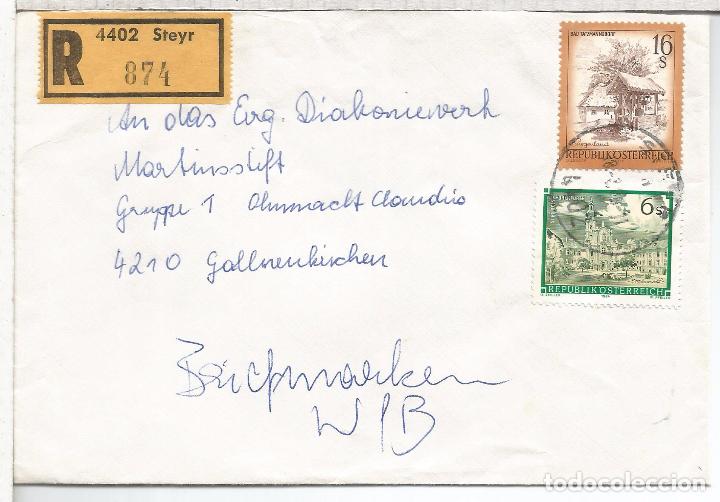 4402 Steyr
R
874
16
S
BAD TATZMANNSDORF
Burgenland
REPUBLIK ÖSTERREICH
An das Evg. Diakoniewerk
Martinsstift
Gruppe 1 Ohnmacht Claudio
4210 Gallneukirchen
6 S
REPUBLIK ÖSTERREICH
1984
Briefmarken
W/B
todocoleccion.net